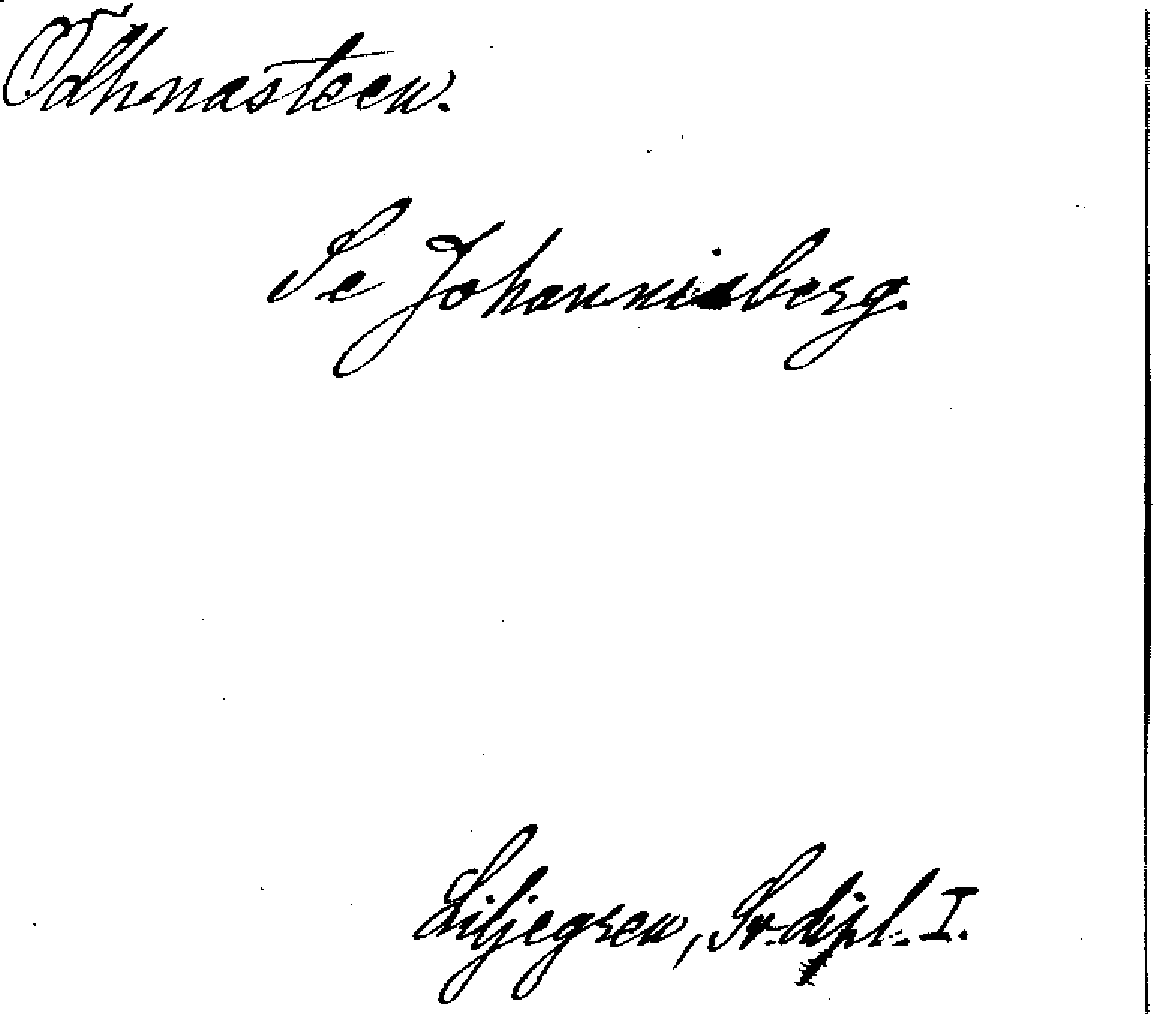 Odhnasteen.
Se Johannisberg.
Liljegren, Sv. dipl. I.